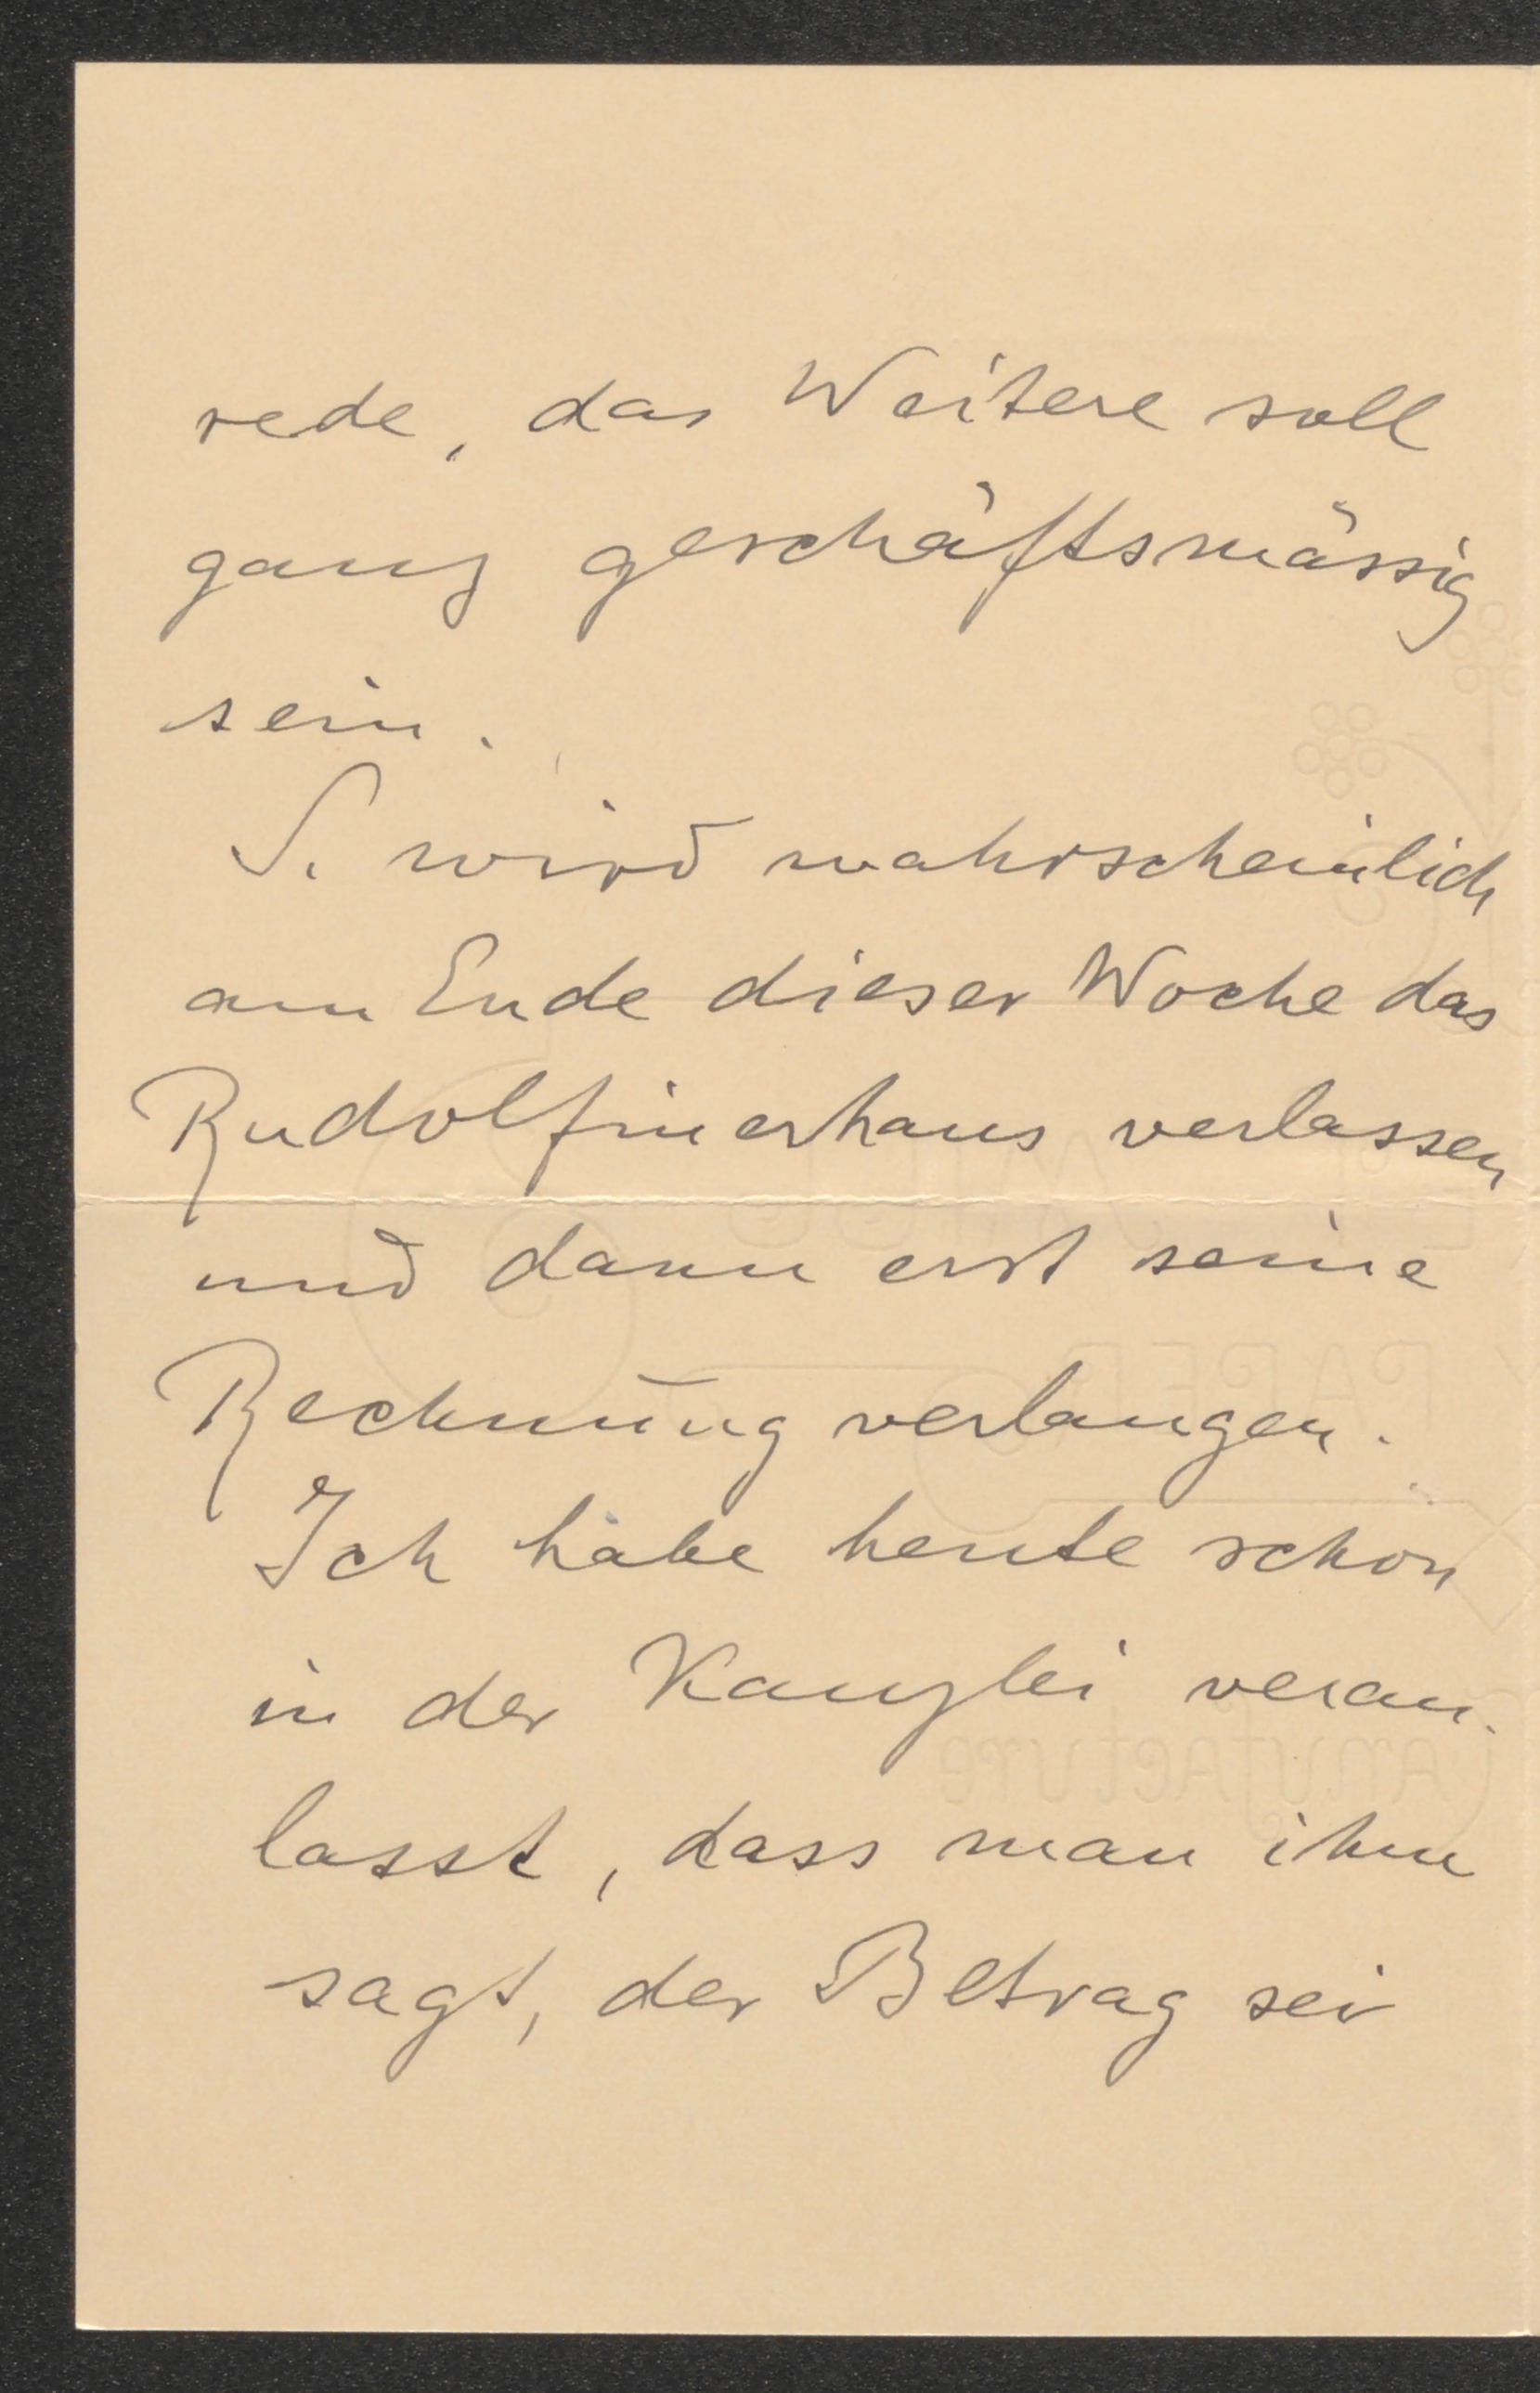 rede, das Weitere soll
ganz geschäftsmässig
sein.
S. wird wahrscheinlich
am Ende dieser Woche das
Rudolfinerhaus verlassen
und dann erst seine
Rechnung verlangen.
Ich habe heute schon
in der Kanzlei veran-
lasst, dass man ihm
sagt, der Betrag sei